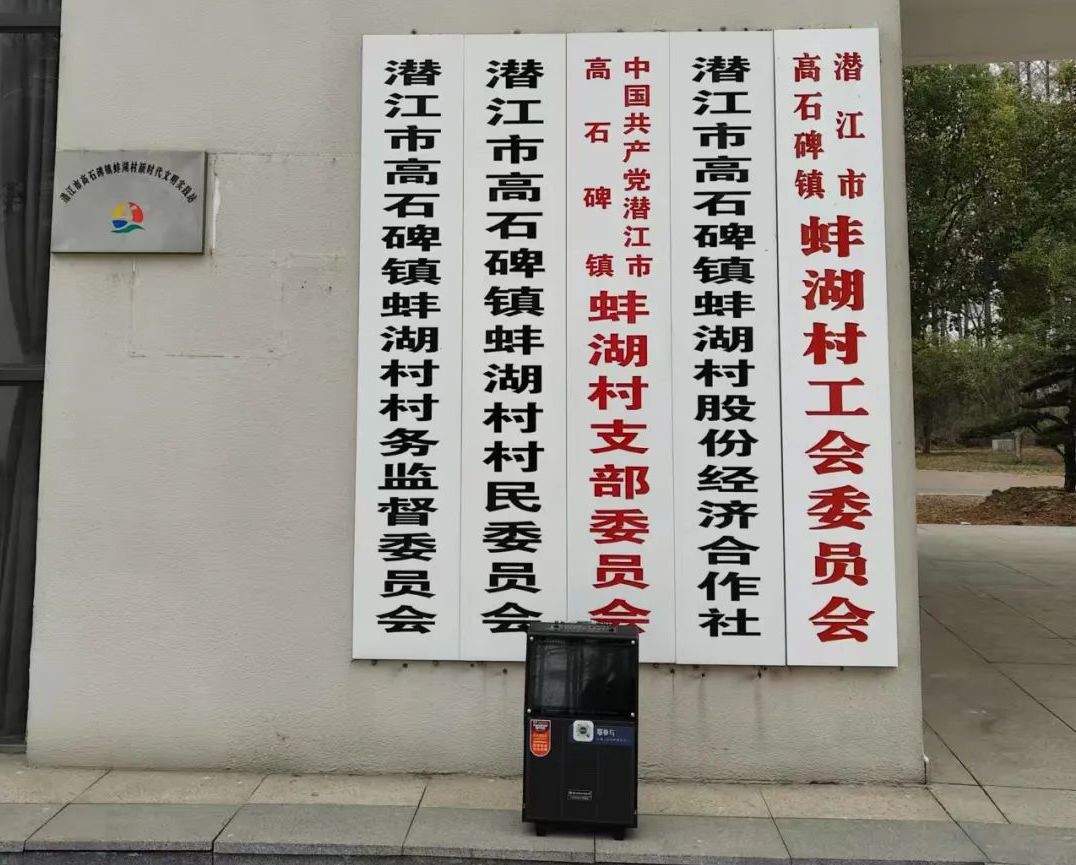 潜江市高石碑镇蚌湖村新时代文明实践站
潜江市高石碑镇蚌湖村村务监督委员会
潜江市高石碑镇蚌湖村村民委员会
中国共产党潜江市
高石碑镇
蚌湖村支部委员会
潜江市高石碑镇蚌湖村股份经济合作社
潜江市
高石碑镇
蚌湖村工会委员会